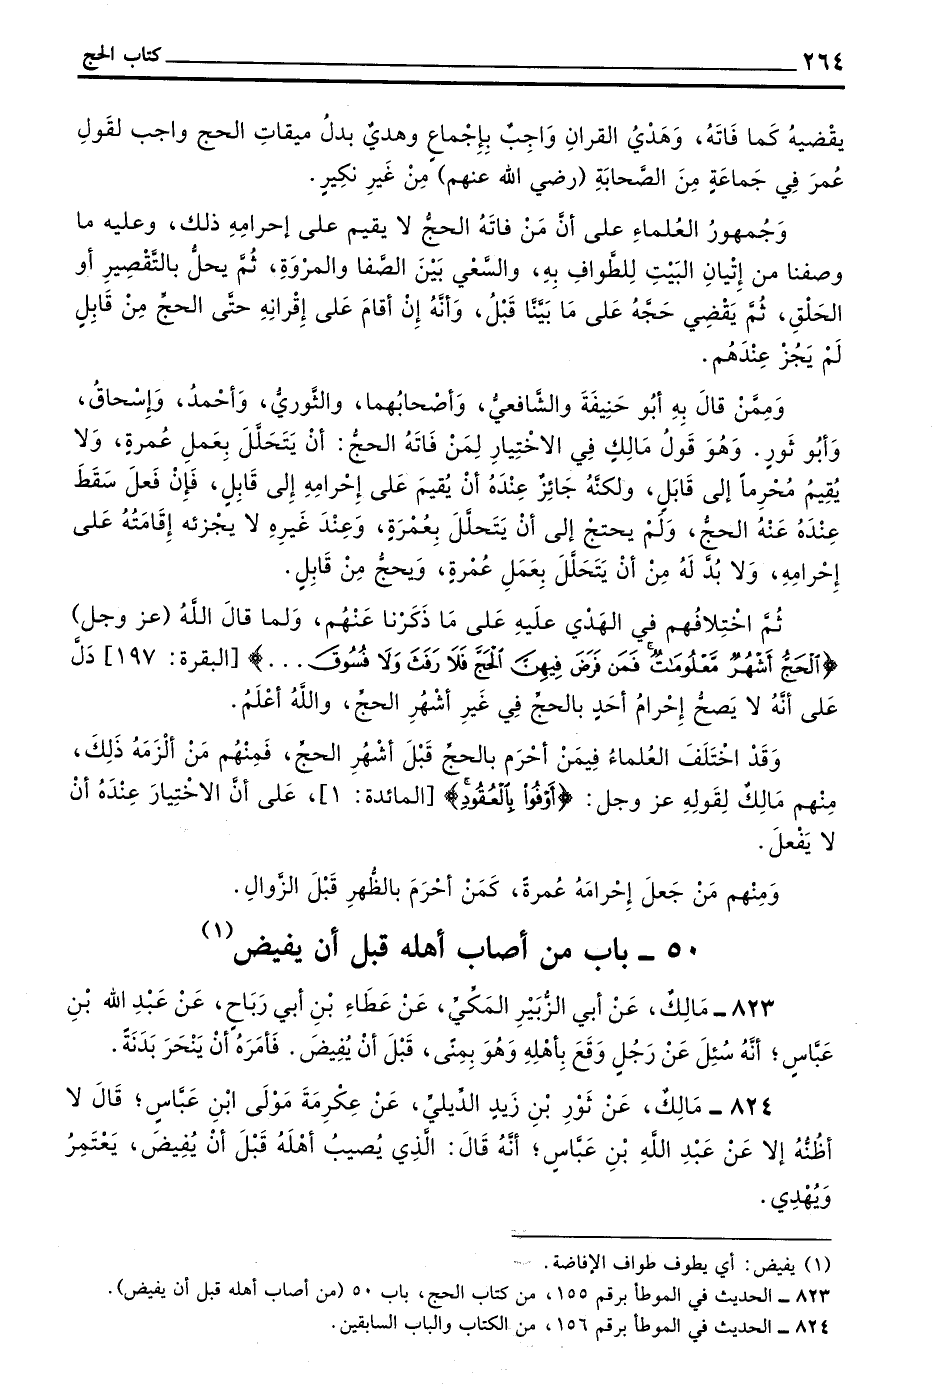 ٢٦٤ كتاب الحج
يقضيهُ كَما فَاتَهُ، وَهَدْيُ القرانِ وَاجِبٌ بِإِجْماعٍ وهديٌ بدلُ ميقاتِ الحج واجب لقَولِ
عُمرَ فِي جَماعَةٍ مِنَ الصَّحابَةِ (رضي الله عنهم) مِنْ غَيرِ نكيرٍ.
وَجُمهورُ العُلماءِ على أنَّ مَنْ فاتَهُ الحجُّ لا يقيم على إحرامِهِ ذلك، وعليه ما
وصفنا من إتْيانِ البَيْتِ لِلطَّوافِ بِهِ، والسَّعْي بَيْنَ الصَّفا والمرْوَةِ، ثُمَّ يحلُّ بالتَّقْصيرِ أو
الحَلْقِ، ثُمَّ يَقْضِي حَجَّهُ عَلى مَا بَيَّنَّا قَبْلُ، وَأنَّهُ إنْ أقامَ عَلى إقْرانِهِ حتَّى الحجِّ مِنْ قَابِلٍ
لَمْ يَجُزْ عِنْدَهُم.
وَمِمَّنْ قالَ بِهِ أبُو حَنِيفَةَ والشَّافعيُّ، وَأصْحابُهما، والثَّوريُّ، وَأحْمدُ، وَإسْحاقُ،
وَأبُو ثَورٍ. وَهُوَ قَولُ مَالِكٍ فِي الاخْتِيارِ لِمَنْ فَاتَهُ الحجُّ: أنْ يَتَحَلَّلَ بِعَملِ عُمرةٍ، وَلا
يُقِيمُ مُحْرِماً إلى قَابَلٍ، ولكنَّهُ جَائِزٌ عِنْدَهُ أنْ يُقيمَ عَلى إحْرامِهِ إلى قَابِلٍ، فَإِنْ فَعلَ سَقَطَ
عِنْدَهُ عَنْهُ الحجُّ، وَلَمْ يحتجْ إلى أنْ يَتَحلَّلَ بِعُمْرَةٍ، وَعِنْدَ غَيرِهِ لا يجْزئه إقَامَتُهُ عَلى
إحْرامِهِ، وَلا بُدَّ لَهُ مِنْ أنْ يَتَحَلَّلَ بِعَملِ عُمْرةٍ، وَيحجُّ مِنْ قَابِلٍ.
ثُمَّ اخْتِلافُهم في الهَدْيِ عليهِ عَلى مَا ذَكَرْنا عَنْهُم، وَلما قالَ اللَّهُ (عز وجل)
﴿ٱلْحَجُّ أَشْهُرٌ مَّعْلُومَاتٌ ۚ فَمَن فَرَضَ فِيهِنَّ ٱلْحَجَّ فَلَا رَفَثَ وَلَا فُسُوقَ...﴾ [البقرة: ١٩٧] دَلَّ
عَلى أنَّهُ لا يَصحُّ إحْرامُ أحَدٍ بالحجِّ فِي غَيرِ أشْهُرِ الحجِّ، واللَّهُ أعْلَمُ.
وَقَدْ اخْتَلَفَ العُلماءُ فِيمَنْ أحْرَم بالحجِّ قَبْلَ أشْهُرِ الحجِّ، فَمِنْهُم مَنْ ألْزَمَهُ ذَلِكَ،
مِنْهم مَالِكٌ لِقَولِهِ عز وجل: ﴿أَوْفُواْ بِٱلْعُقُودِۚ﴾ [المائدة: ١]، عَلى أنَّ الاخْتِيارَ عِنْدَهُ أنْ
لا يَفْعلَ.
وَمِنْهم مَنْ جَعلَ إحْرامَهُ عُمرةً، كَمَنْ أحْرَمَ بالظُّهرِ قَبْلَ الزَّوالِ.
٥٠ ـ باب من أصاب أهله قبل أن يفيض(١)
٨٢٣ ـ مَالِكٌ، عَنْ أبي الزُّبَيْرِ المَكِّيِّ، عَنْ عَطَاءِ بْنِ أبي رَبَاحٍ، عَنْ عَبْدِ الله بْنِ
عَبَّاسٍ؛ أنَّهُ سُئِلَ عَنْ رَجُلٍ وَقَعَ بِأهْلِهِ وَهُوَ بِمِنًى، قَبْلَ أنْ يُفِيضَ. فَأمَرَهُ أنْ يَنْحَرَ بَدَنَةً.
٨٢٤ ـ مَالِكٌ، عَنْ ثَوْرِ بْنِ زَيدٍ الدِّيليِّ، عَنْ عِكْرِمَةَ مَوْلَى ابْنِ عَبَّاسٍ؛ قَالَ لا
أظُنُّهُ إلا عَنْ عَبْدِ اللَّهِ بْنِ عَبَّاسٍ؛ أنَّهُ قَالَ: الَّذِي يُصيبُ أهْلَهُ قَبْلَ أنْ يُفِيضَ، يَعْتَمِرُ
وَيُهْدِي.
(١) يفيض: أي يطوف طواف الإفاضة.
٨٢٣ ـ الحديث في الموطأ برقم ١٥٥، من كتاب الحج، باب ٥٠ (من أصاب أهله قبل أن يفيض).
٨٢٤ ـ الحديث في الموطأ برقم ١٥٦، من الكتاب والباب السابقين.